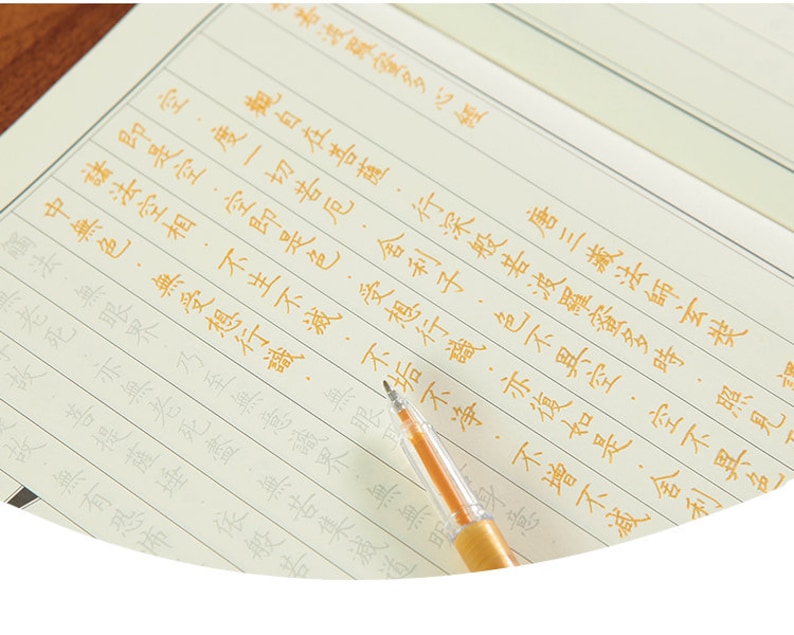 般若波羅蜜多心經
唐三藏法師玄奘 譯
觀自在菩薩．行深般若波羅蜜多時．照見
空．度一切苦厄．舍利子．色不異空．空不異色
即是空．空即是色．受想行識．亦復如是．舍利
諸法空相．不生不滅．不垢不淨．不增不減
中無色．無受想行識．無眼 意
觸法．無眼界．乃至無意識界．無無明
無老死．亦無老死盡．無苦集滅道
故．菩提薩埵．依般
故．無有恐怖